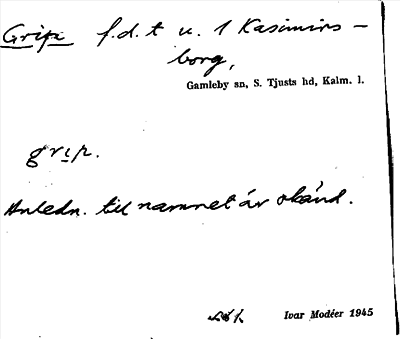 Gripe f.d. t u. 1 Kasimirs-
borg,
Gamleby sn, S. Tjusts hd, Kalm. l.
grip.
Anledn. till namnet är okänd.
Ivar Modéer 1945